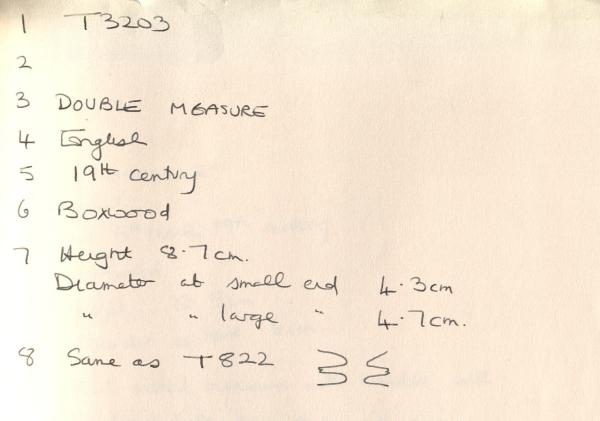 1 T3203
2
3 DOUBLE MEASURE
4 English
5 19th century
6 Boxwood
7 Height 8.7cm.
Diameter at small end 4.3cm
" " large " 4.7cm.
8 Same as T822